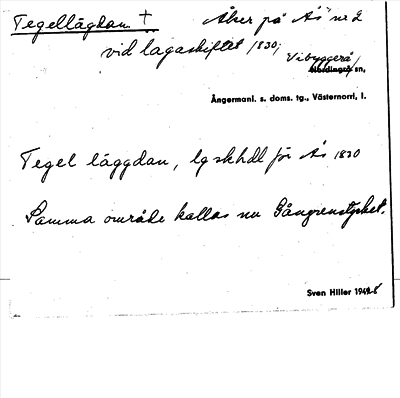 Tegellägdan † Åker på Ås nr 2
vid lagaskiftet 1830;
Vibyggerå
Nordingrå sn,
Ångermanl. s. doms. tg., Västernorrl. l.
Tegel läggdan, lgskhdl för Ås 1830
Samma område kallas nu Gångrenstycket.
Sven Hiller 1948